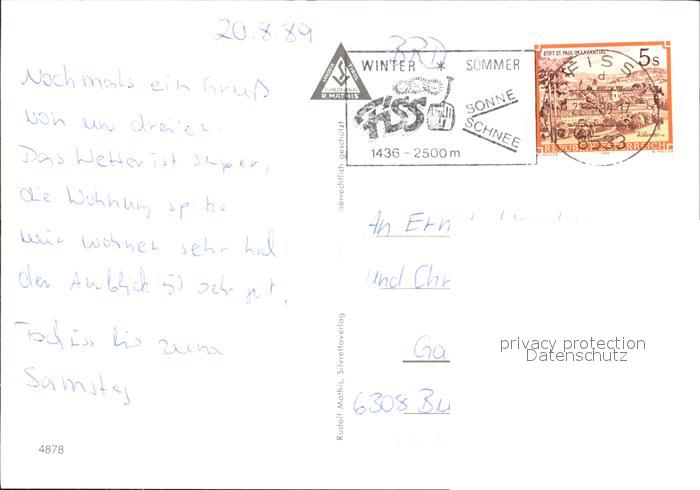 20.8.89
Nochmals ein Gruß
von uns dreien.
Das Wetter ist super,
die Wohnung spitze
wir wohnen sehr
der Ausblick ist sehr gut.
Tschüss bis zum
Samstag
4878
BRD
R. MATHIS
WINTER * SOMMER
FISS
SONNE
SCHNEE
1436 - 2500 m
STIFT ST. PAUL IM LAVANTTAL
5s
REPUBLIK ÖSTERREICH
FISS
d
6533
errechtlich geschützt
Rudolf Mathis, Silvrettaverlag
An Ern
und Chr
Ga
6308 Bu
privacy protection
Datenschutz